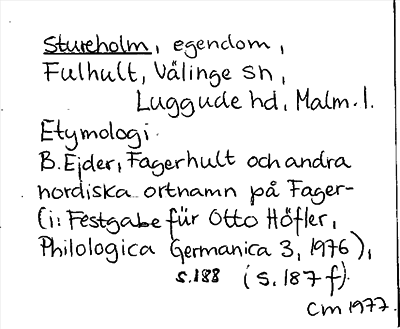 Stureholm, egendom,
Fulhult, Välinge sn,
Luggude hd, Malm. l.
Etymologi.
B. Ejder, Fagerhult och andra
nordiska ortnamn på Fager-
(i: Festgabe für Otto Höfler,
Philologica Germanica 3, 1976),
s.188 (s. 187 f).
CM 1977.